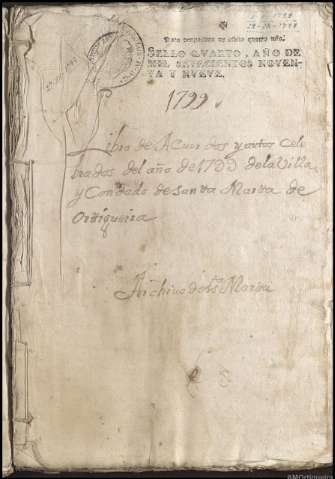 Para despachos de oficio quatro mrs.
SELLO QVARTO, AÑO DE
MIL SETECIENTOS NOVEN-
TA Y NUEVE.
1799
Libro de Acuerdos y autos Cele
brados del año de 1799 de la Villa
y Condado de Santa Marta de
Ortigueira
Archivo de Sta Marta
AMOrtigueira